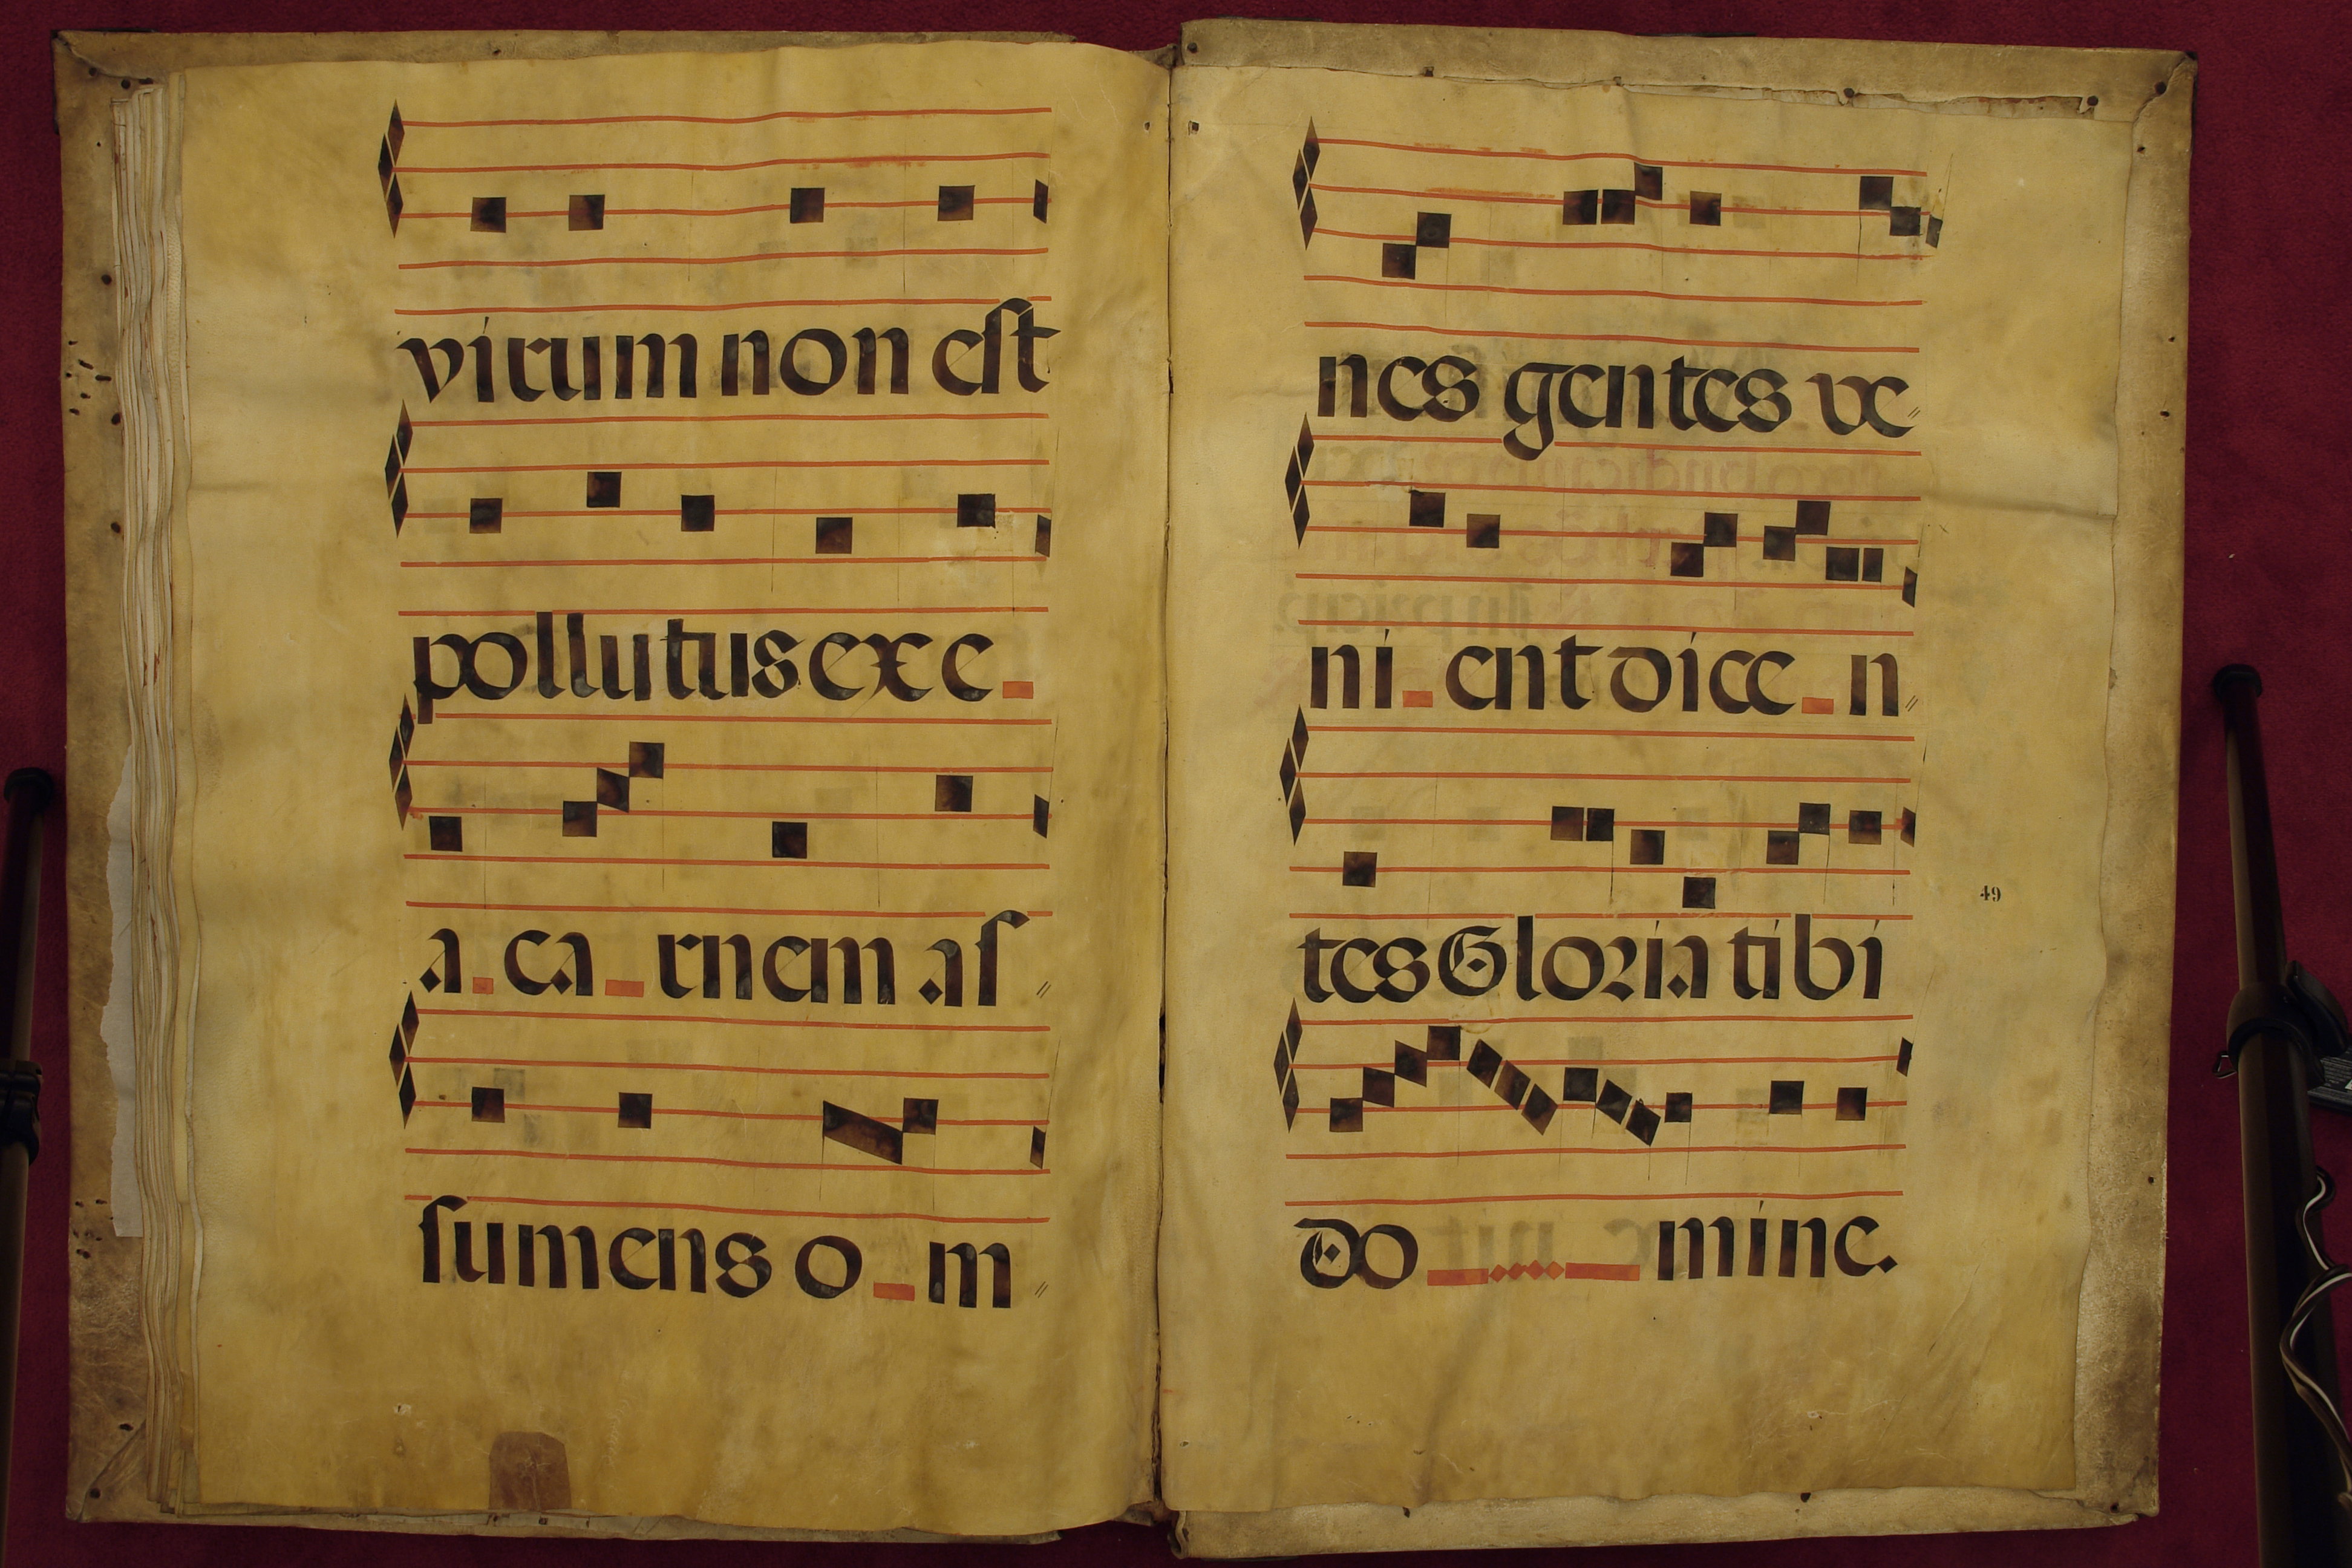 virum non est
pollutus exe_
a_ca_rnem as
sumens o_m
nes gentes ve
ni_ent dice_n
tes Gloria tibi
49
Do_mine.